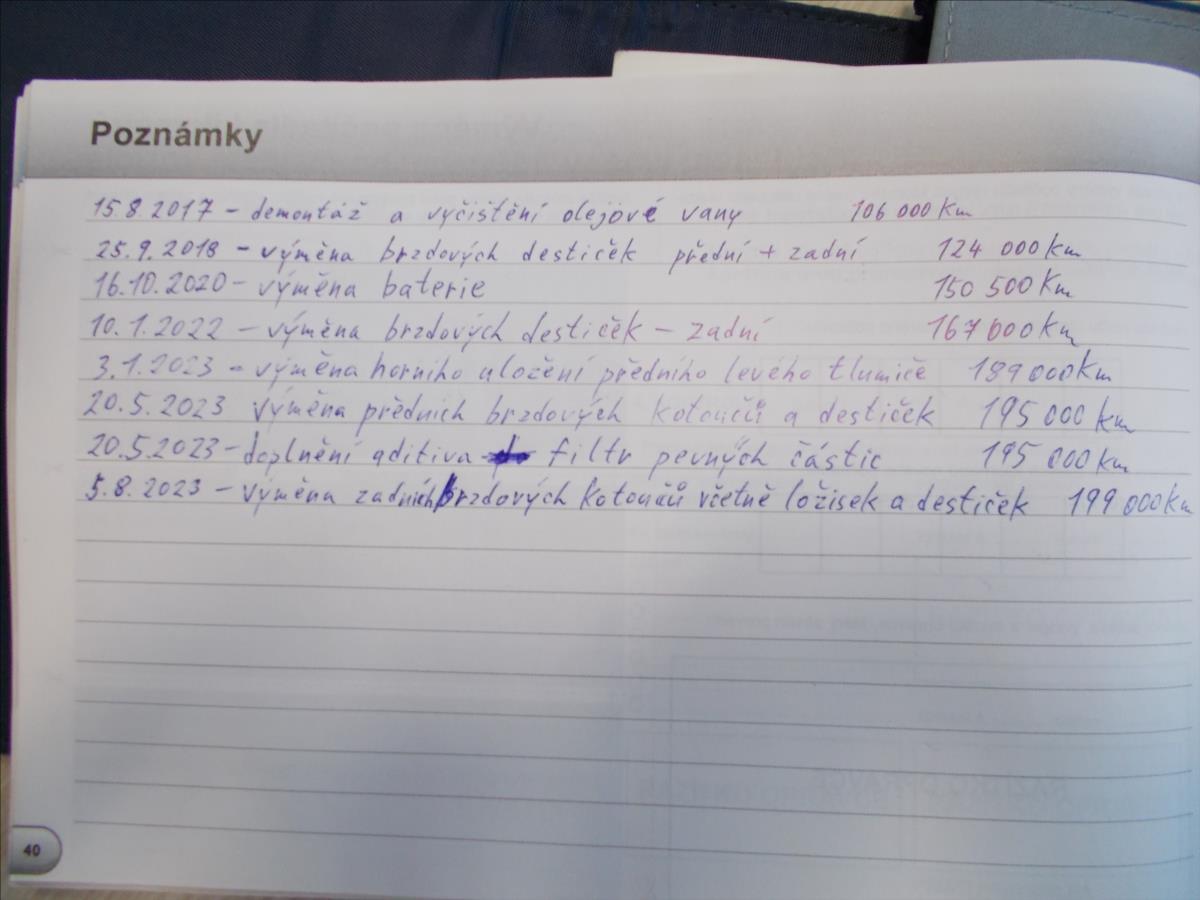 Poznámky
15.8.2017 - demontáž a vyčištění olejové vany 106 000 Km
25.9.2018 - výměna brzdových destiček přední + zadní 124 000 Km
16.10.2020 - výměna baterie 150 500 Km
10.1.2022 - výměna brzdových destiček - zadní 167 000 Km
3.1.2023 - výměna horního uložení předního levého tlumiče 189 000 Km
20.5.2023 výměna předních brzdových kotoučů a destiček 195 000 Km
20.5.2023 - doplnění aditiva filtr pevných částic 195 000 Km
5.8.2023 - výměna zadních brzdových kotoučů včetně ložisek a destiček 199 000 Km
40